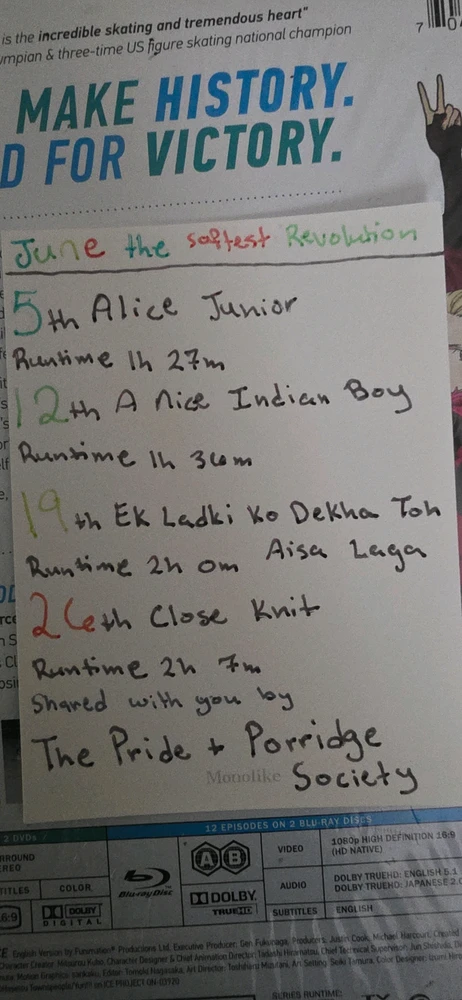 is the incredible skating and tremendous heart"
& three-time US figure skating national champion
MAKE HISTORY.
D FOR VICTORY.
7 0
June the softest Revolution
5th Alice Junior
Runtime 1h 27m
12th A Nice Indian Boy
Runtime 1h 36m
19th Ek Ladki Ko Dekha Toh
Runtime 2h 0m Aisa Laga
26th Close Knit
Runtime 2h 7m
Shared with you by
The Pride + Porridge
Monolike Society
12 EPISODES ON 2 BLU-RAY DISCS
2 DVDs
COLOR
DOLBY
DIGITAL
16:9
Blu-ray Disc
A B
DOLBY
TRUEHD
VIDEO
1080p HIGH DEFINITION 16:9
(HD NATIVE)
AUDIO
DOLBY TRUEHD: ENGLISH 5.1
DOLBY TRUEHD: JAPANESE 2.0
SUBTITLES
ENGLISH
English Version by Funimation® Productions Ltd. Executive Producer: Gen Fukunaga, Producers: Justin Cook, Michael Harcourt, Created
SERIES RUNTIME: